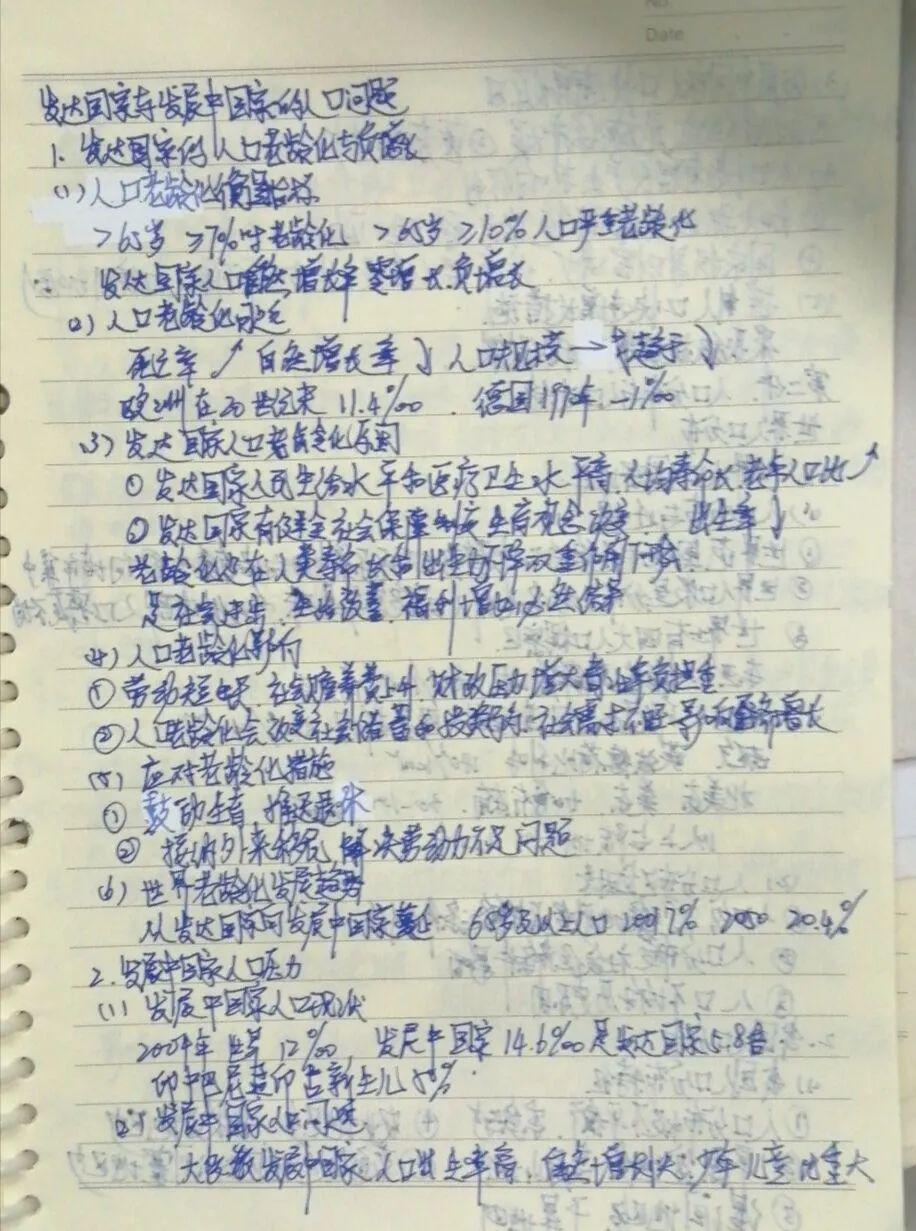 No.
Date
发达国家与发展中国家的人口问题
1. 发达国家的人口老龄化与负增长
(1) 人口老龄化衡量指标
>65岁 ≥7%叫老龄化 >65岁 ≥10% 人口严重老龄化
发达国家人口 增长率 零增长.负增长
(2) 人口老龄化
死亡率 ↗ 自然增长率 ↓ 人口规模 → 趋于 ↓
欧洲在20世纪末 11.4‰ . 德国 -1‰
(3) 发达国家人口老龄化原因
① 发达国家人民生活水平和医疗卫生水平高. 人均寿命长. 老年人口比↗
② 发达国家有健全社会保障制度 生育观念改变 出生率↓
老龄化也在人类寿命长和出生率下降双重作用下
是社会进步 生活改善. 福利增加必然结果
(4) 人口老龄化影响
① 劳动短缺. 社会赡养费上升 财政压力增大 青壮年负担重
② 人口老龄化会改变社会储蓄和投资 社会需求不旺 影响 增长
(5) 应对老龄化措施
① 鼓励生育. 推迟退休
② 接纳外来移民 解决劳动力不足问题
(6) 世界老龄化发展趋势
从发达国家向发展中国家蔓延 65岁及以上人口 7% 2050 20.4%
2. 发展中国家人口压力
(1) 发展中国家人口现状
12‰ 发展中国家 14.6‰ 是发达国家5.8倍
印中巴尼孟印占新生儿 50%
(2) 发展中国家人口问题
大多数发展中国家 人口出生率高. 自然增长快. 少年儿童比重大